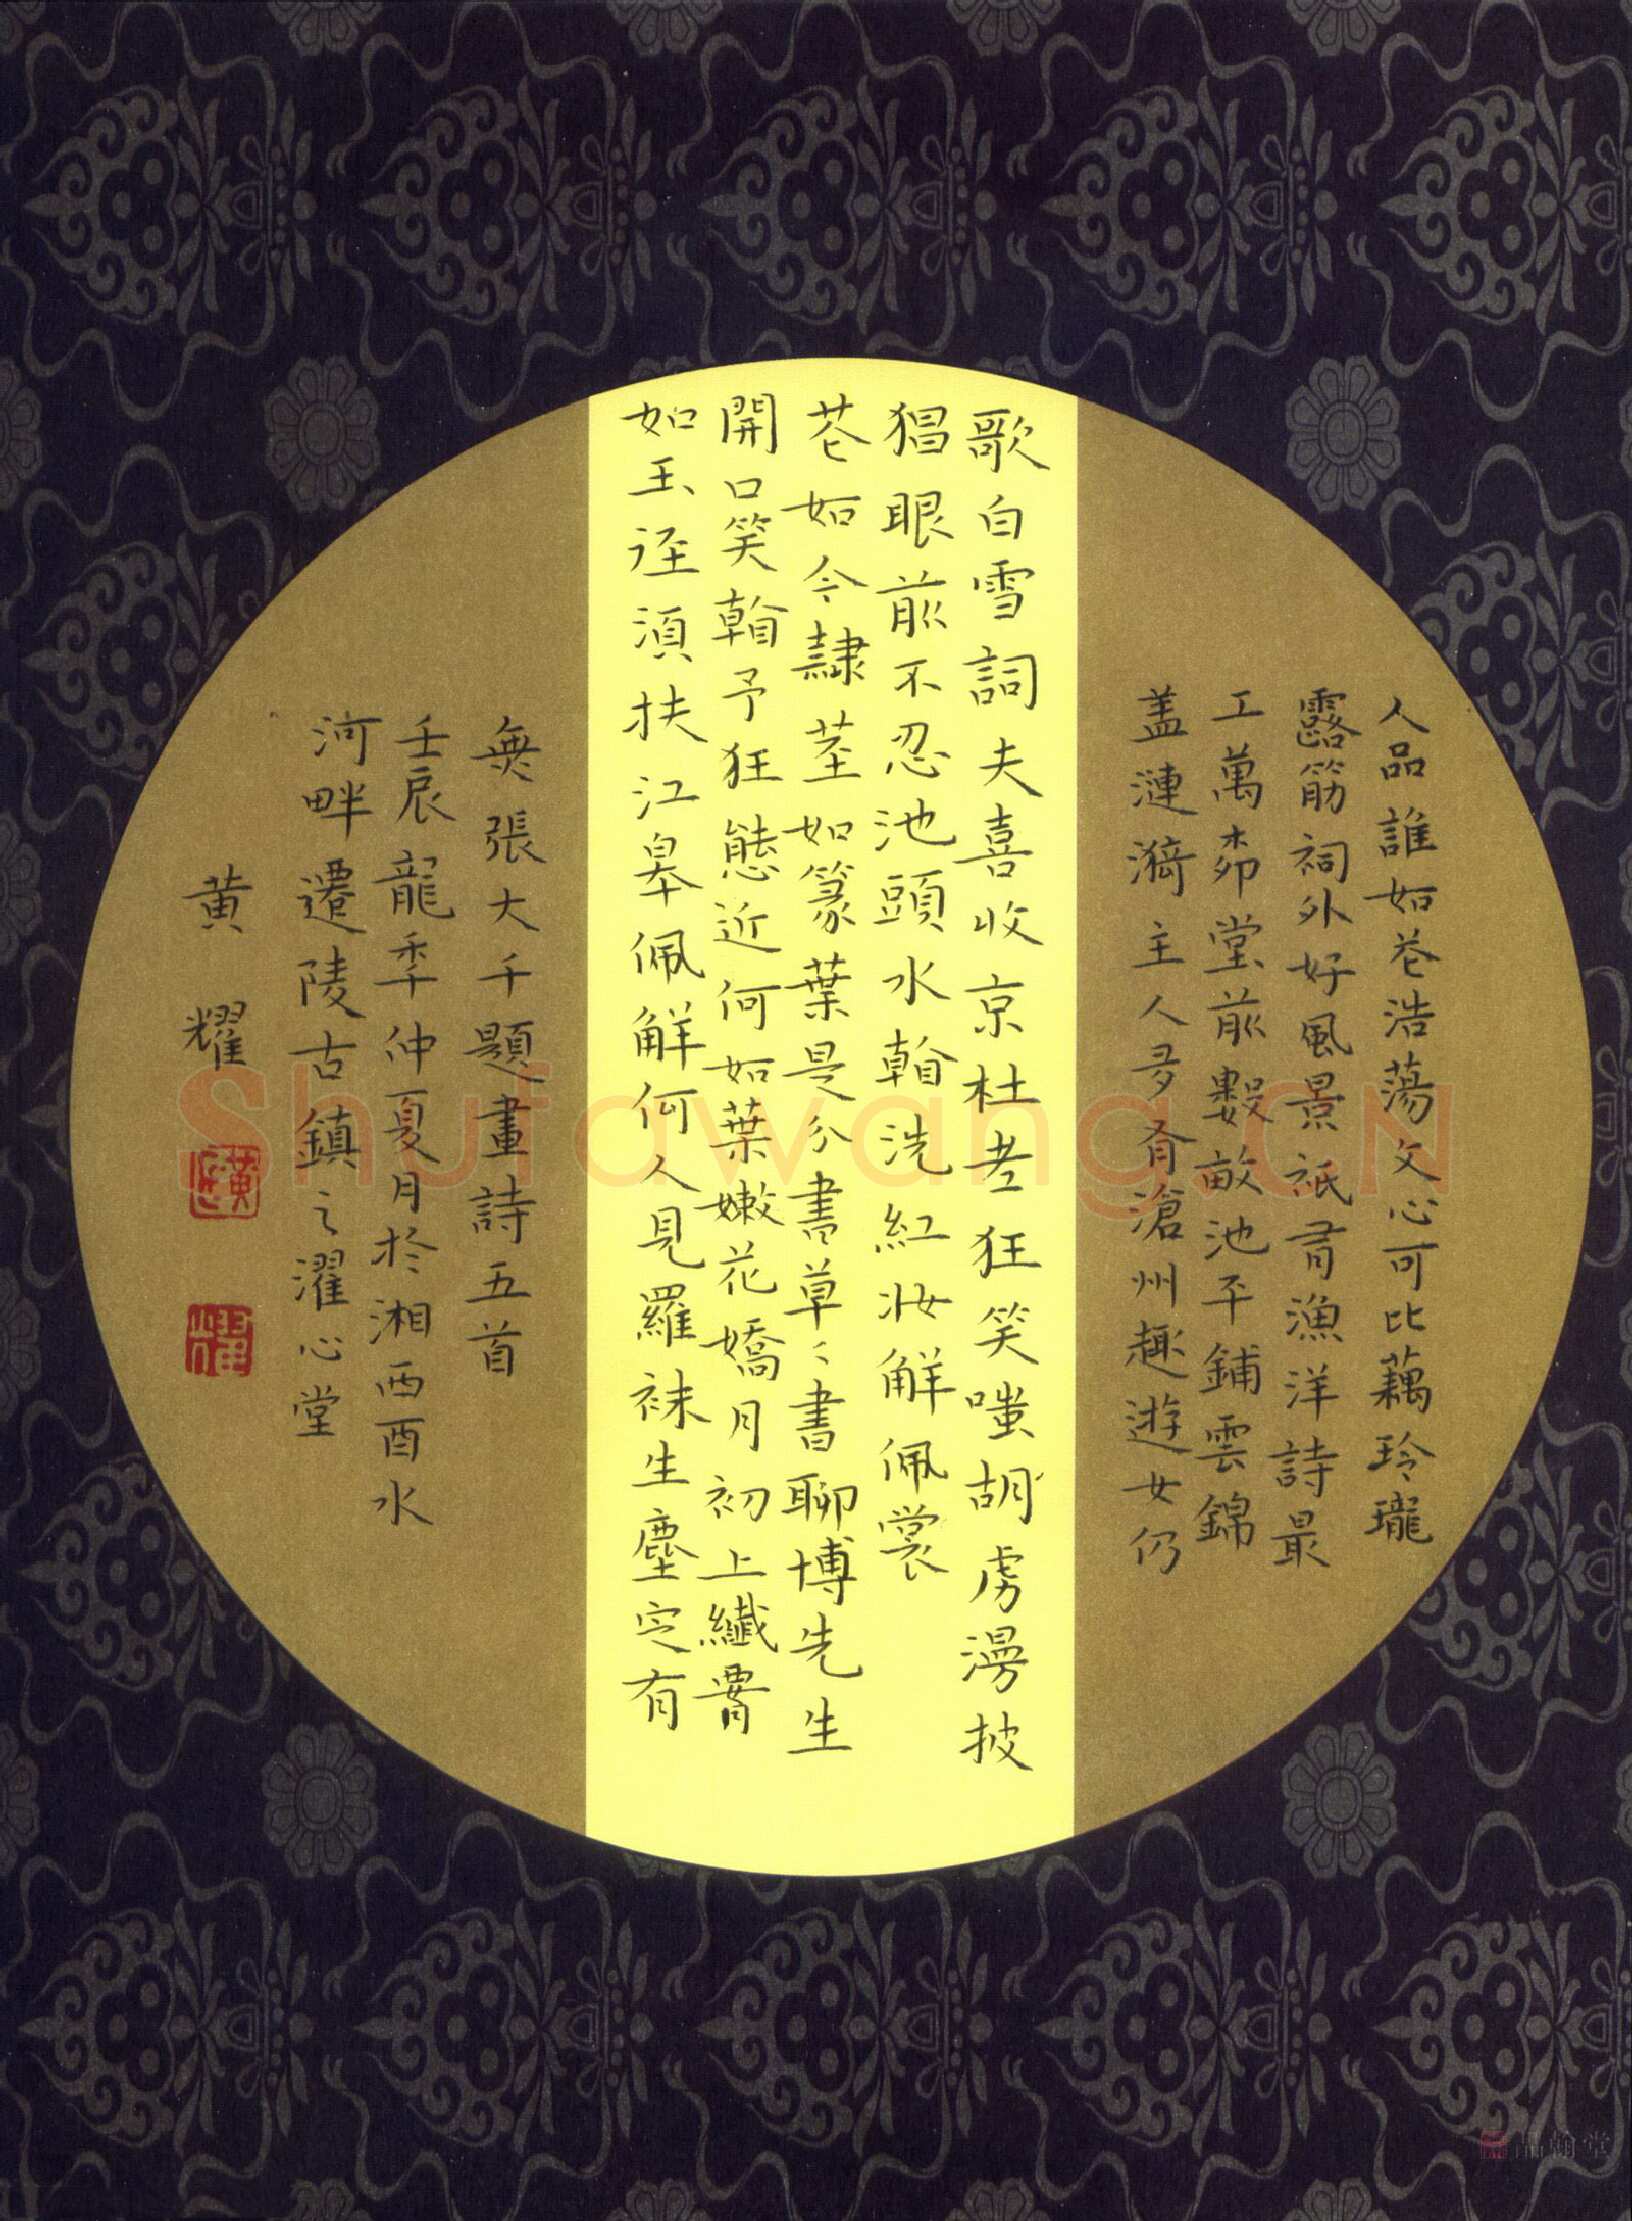 人品誰如花浩蕩文心可比藕玲瓏
露筋祠外好風景祇有漁洋詩最
工萬柳堂前數畝池平鋪雲錦
蓋漣漪主人多有滄州趣遊女仍
歌白雪詞夫喜收京杜老狂笑嗤胡虜漫披
猖眼前不忍池頭水翰洗紅妝解佩裳
花如今隸莖如篆葉是分書草〻書聊博先生
開口笑翰予狂態近何如葉嫩花嬌月初上纖腰
如玉逕須扶江皋佩解何人見羅襪生塵定有
無張大千題畫詩五首
壬辰龍年仲夏月於湘西酉水
河畔遷陵古鎮之濯心堂
黃耀
Shufawang.CN
品翰堂